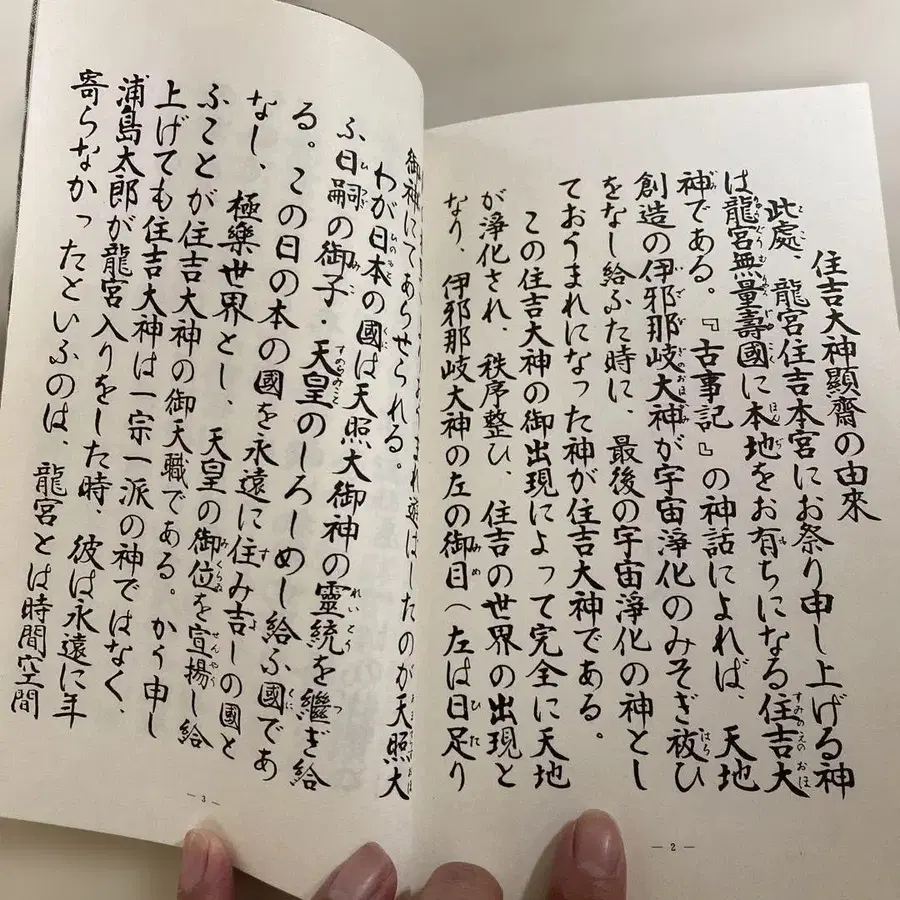 住吉大神顯齋の由來
此處、龍宮住吉本宮にお祭り申し上げる神
は龍宮無量壽國に本地をお有ちになる住吉大
神である。『古事記』の神話によれば、天地
創造の伊邪那岐大神が宇宙淨化のみそぎ祓ひ
をなし給ふた時に、最後の宇宙淨化の神とし
ておうまれになった神が住吉大神である。
この住吉大神の御出現によって完全に天地
が淨化され、秩序整ひ、住吉の世界の出現と
なり、伊邪那岐大神の左の御目(左は日足り
— 2 —
遊ばしたのが天照大
御神にてあらせられる。
わが日本の國は天照大御神の靈統を繼ぎ給
ふ日嗣の御子・天皇のしろしめし給ふ國であ
る。この日の本の國を永遠に住み吉しの國と
なし、極樂世界とし、天皇の御位を宣揚し給
ふことが住吉大神の御天職である。かう申し
上げても住吉大神は一宗一派の神ではなく、
浦島太郎が龍宮入りをした時、彼は永遠に年
寄らなかったといふのは、龍宮とは時間空間
— 3 —